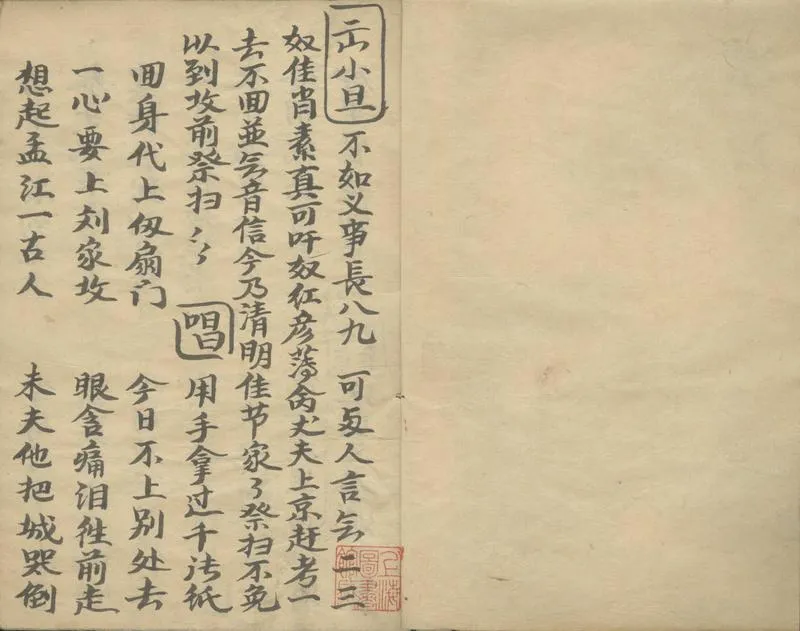 小旦 不如义事長八九 可与人言乞二三
奴佳肖素真可吁奴红彦薄命丈夫上京赶考一
去不回並乞音信今乃清明佳节家々祭扫不免
以到坟前祭扫々々 唱 用手拿过千张纸
回身代上扇门 今日不上别处去
一心要上刘家坟 眼含痛泪往前走
想起孟江一古人 未夫他把城哭倒
上海圖書館藏